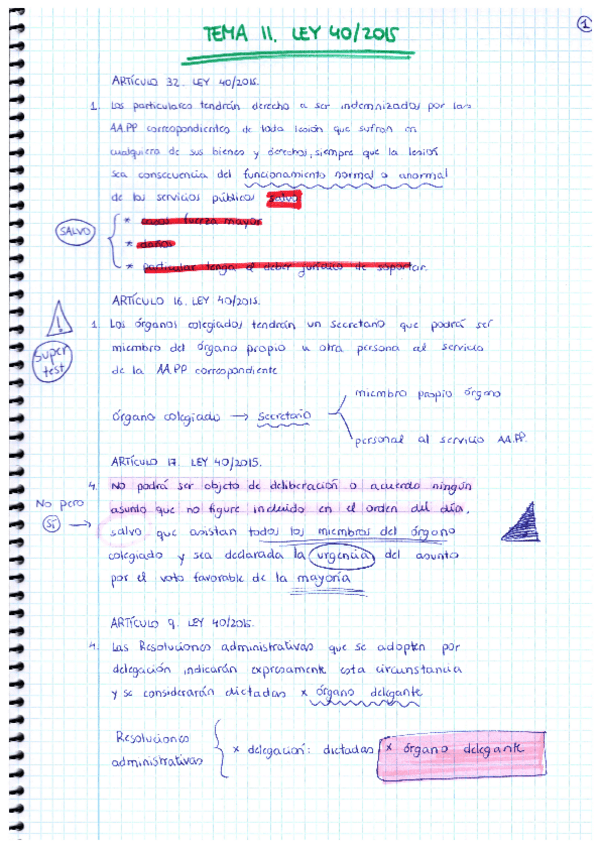 1
TEMA 11. LEY 40/2015
ARTÍCULO 32. LEY 40/2015.
1. Los particulares tendrán derecho a ser indemnizados por las
AA.PP correspondientes de toda lesión que sufran en
cualquiera de sus bienes y derechos, siempre que la lesión
sea consecuencia del funcionamiento normal o anormal
de los servicios públicos salvo
SALVO
* casos fuerza mayor
* daños
* particular tenga el deber jurídico de soportar.
ARTÍCULO 16. LEY 40/2015.
!
super test
1. Los órganos colegiados tendrán un Secretario que podrá ser
miembro del órgano propio u otra persona al servicio
de la AA.PP correspondiente
miembro propio órgano
órgano colegiado → Secretario
personal al servicio AA.PP.
ARTÍCULO 17. LEY 40/2015.
4. No podrá ser objeto de deliberación o acuerdo ningún
asunto que no figure incluido en el orden del día,
No pero
sí →
salvo que asistan todos los miembros del órgano
colegiado y sea declarada la urgencia del asunto
por el voto favorable de la mayoría
ARTÍCULO 9. LEY 40/2015.
4. Las Resoluciones administrativas que se adopten por
delegación indicarán expresamente esta circunstancia
y se considerarán dictadas x órgano delegante
Resoluciones
administrativas
x delegación: dictadas x órgano delegante